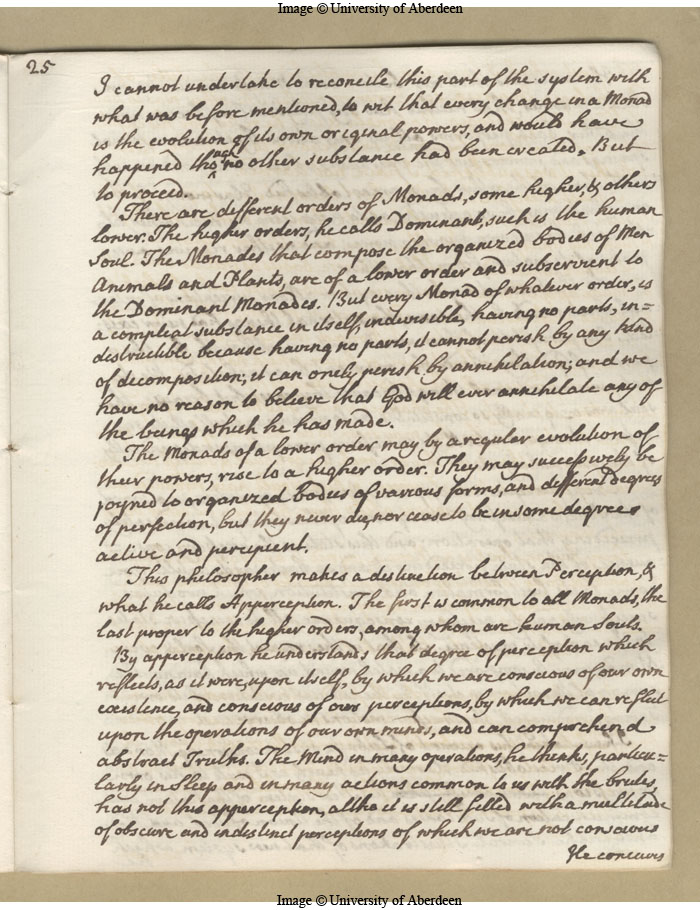 Image © University of Aberdeen
25
I cannot undertake to reconcile this part of the system with
what was before mentioned, to wit that every change in a Monad
is the evolution of its own original powers, and would have
happened tho no other substance had been created. But
to proceed.
There are different orders of Monads, some higher, & others
lower. The higher orders, he calls Dominant, such is the human
Soul. The Monades that compose the organized bodies of Men
Animals and Plants, are of a lower order and subservient to
the Dominant Monades. But every Monad of whatever order, is
a compleat substance in itself, indivisible, having no parts, in=
destructible because having no parts, it cannot perish by any kind
of decomposition; it can onely perish by annihilation; and we
have no reason to believe that God will ever annihilate any of
the beings which he has made.
The Monads of a lower order may by a regular evolution of
their powers, rise to a higher order. They may successively be
joyned to organized bodies of various forms, and different degrees
of perfection, but they never die, nor cease to be in some degree
active and percipient.
This philosopher makes a destinction between Perception, &
what he calls Apperception. The first is common to all Monads, the
last proper to the higher orders, among whom are human Souls.
By apperception he understands that degree of perception which
reflects, as it were, upon itself, by which we are conscious of our own
existence, and conscious of our perceptions, by which we can reflect
upon the operations of our own minds, and can comprehend
abstract Truths. The Mind in many operations, he thinks, particu=
larly in Sleep and in many actions common to us with the brutes,
has not this apperception, altho it is still filled with a multitude
of obscure and indistinct perceptions of which we are not conscious
He conceives
Image © University of Aberdeen